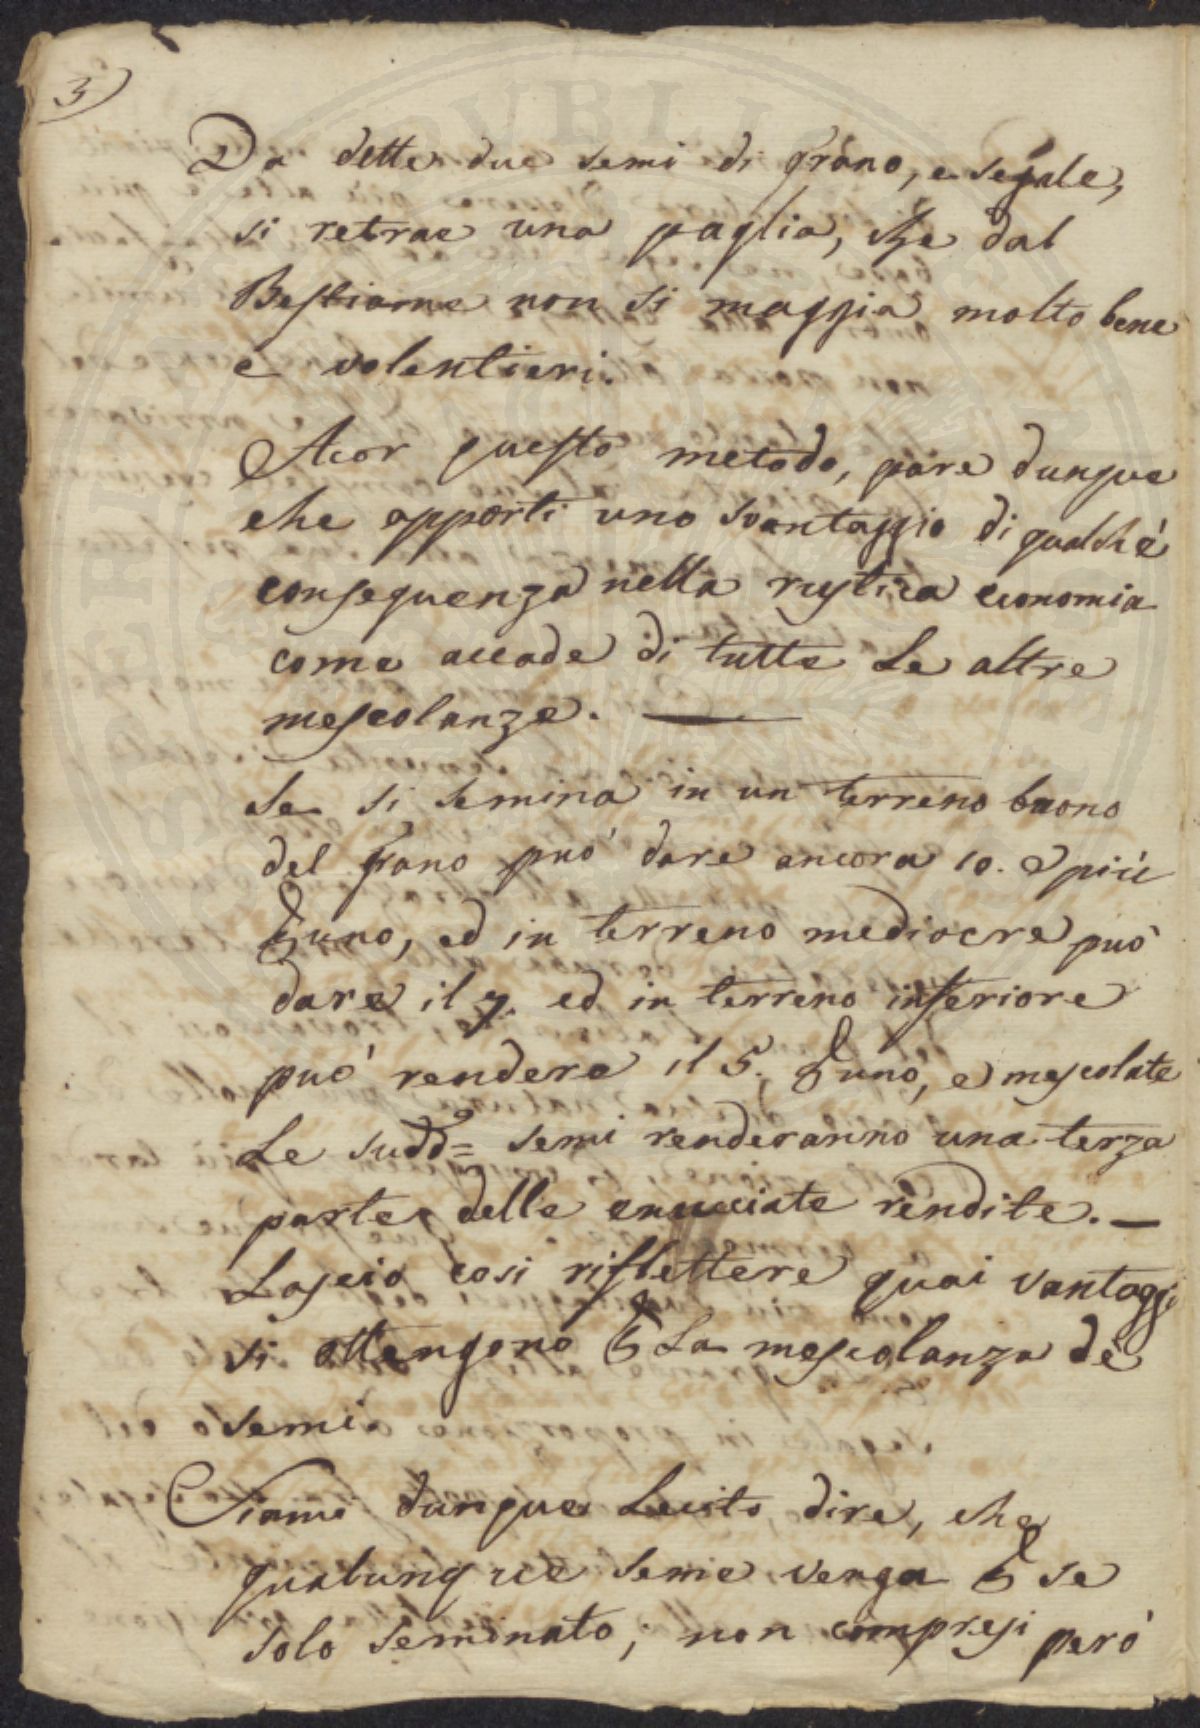 3)
Da dette due semi di Grano, e segale,
si retrae una paglia, che dal
Bestiame non si maggia molto bene
e volentieri.
Acor questo metodo, pare dunque
che apporti uno svantaggio di qualche
consequenza nella rustica economia
come accade di tutte Le altre
mescolanze.
Se si semina in un terreno buono
del Grano può dare ancora 10. e più
p uno, ed in terreno mediocre può
dare il 7. ed in terreno inferiore
può rendere il 5. p uno, e mescolate
Le sudd= semi renderanno una terza
parte delle enucciate rendite. —
Lascio cosi riflettere quai vantaggi
si ottengono p La mescolanza de
semi.
Siami dunque Lecito dire, che
qualunque seme venga p se
solo seminato; non compresi però